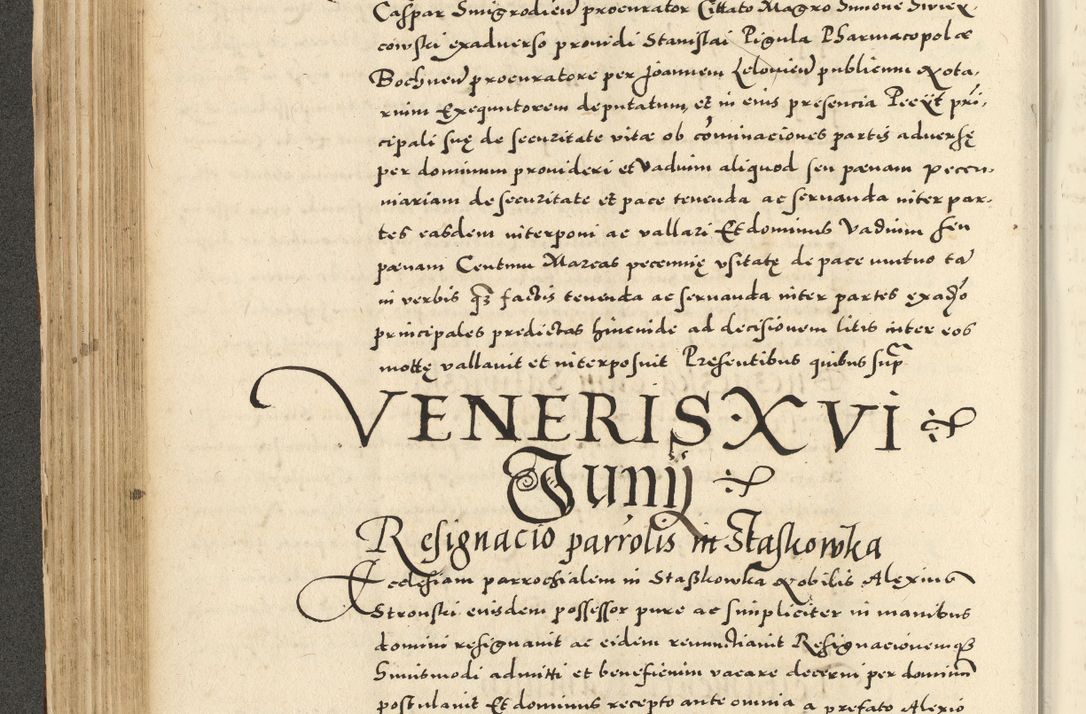 Caspar Smigrodień procurator Cittato Magro Simone Swiex-
cowski exadverso providi Stanislai Pigula Pharmacopolæ
Bochnień procuratore per Joannem Lelovień publicum Nota,
rium Exequutorem deputatum, et in eius presencia Peeÿt prī,
cipali suę de securitate vitæ ob cōminaciones partis adversę
per dominum provideri et Vadium aliquod seu pænam pecun-
niariam de securitate et pace tenenda ac servanda inter par-
tes easdem interponi ac vallari Et dominus Vadium seu
pænam Centum Marcas pecunię usitatę de pace mutuo tā
in verbis q̃z factis tenenda ac servanda inter partes ex adṽo
principales predictas hincinde ad decisionem litis inter eos
mottę vallavit et interposuit Presentibus quibus sup̄
VENERIS XVI
Junij
Resignacio parrōlis in Staskowka
Ecclesiam parrochialem in Staßkowka Nobilis Alexius
Stronski eiusdem possessor pure ac simpliciter in manibus
domini resignavit ac eidem renunctiavit Resignacionemqȝ
Smismodi admitti et beneficium vacare decerni per dominū
postulavit Et dominus recepto ante omnia a prefato Alexio